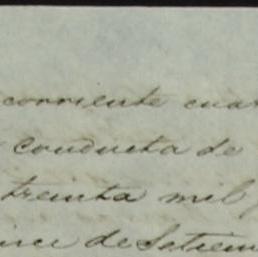 corriente cua
conducta de
treinta mil
ince de Setiem